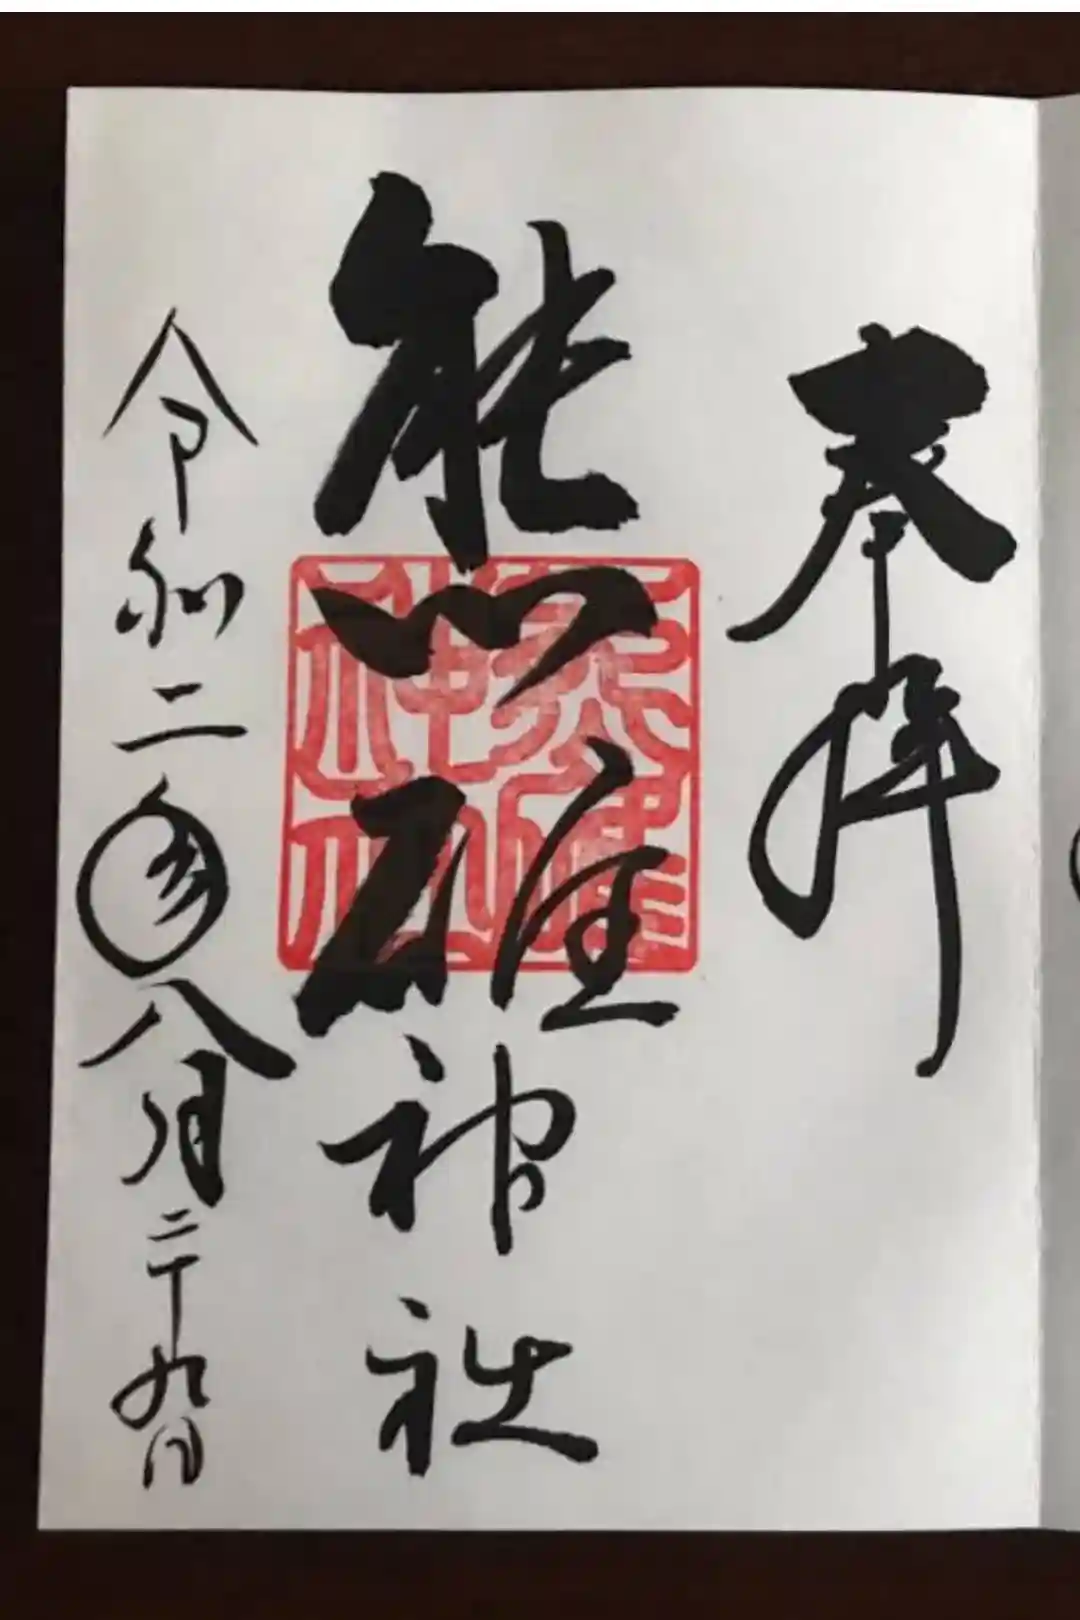 奉拝
熊碓神社
令和二年八月二十九日
熊碓
神社